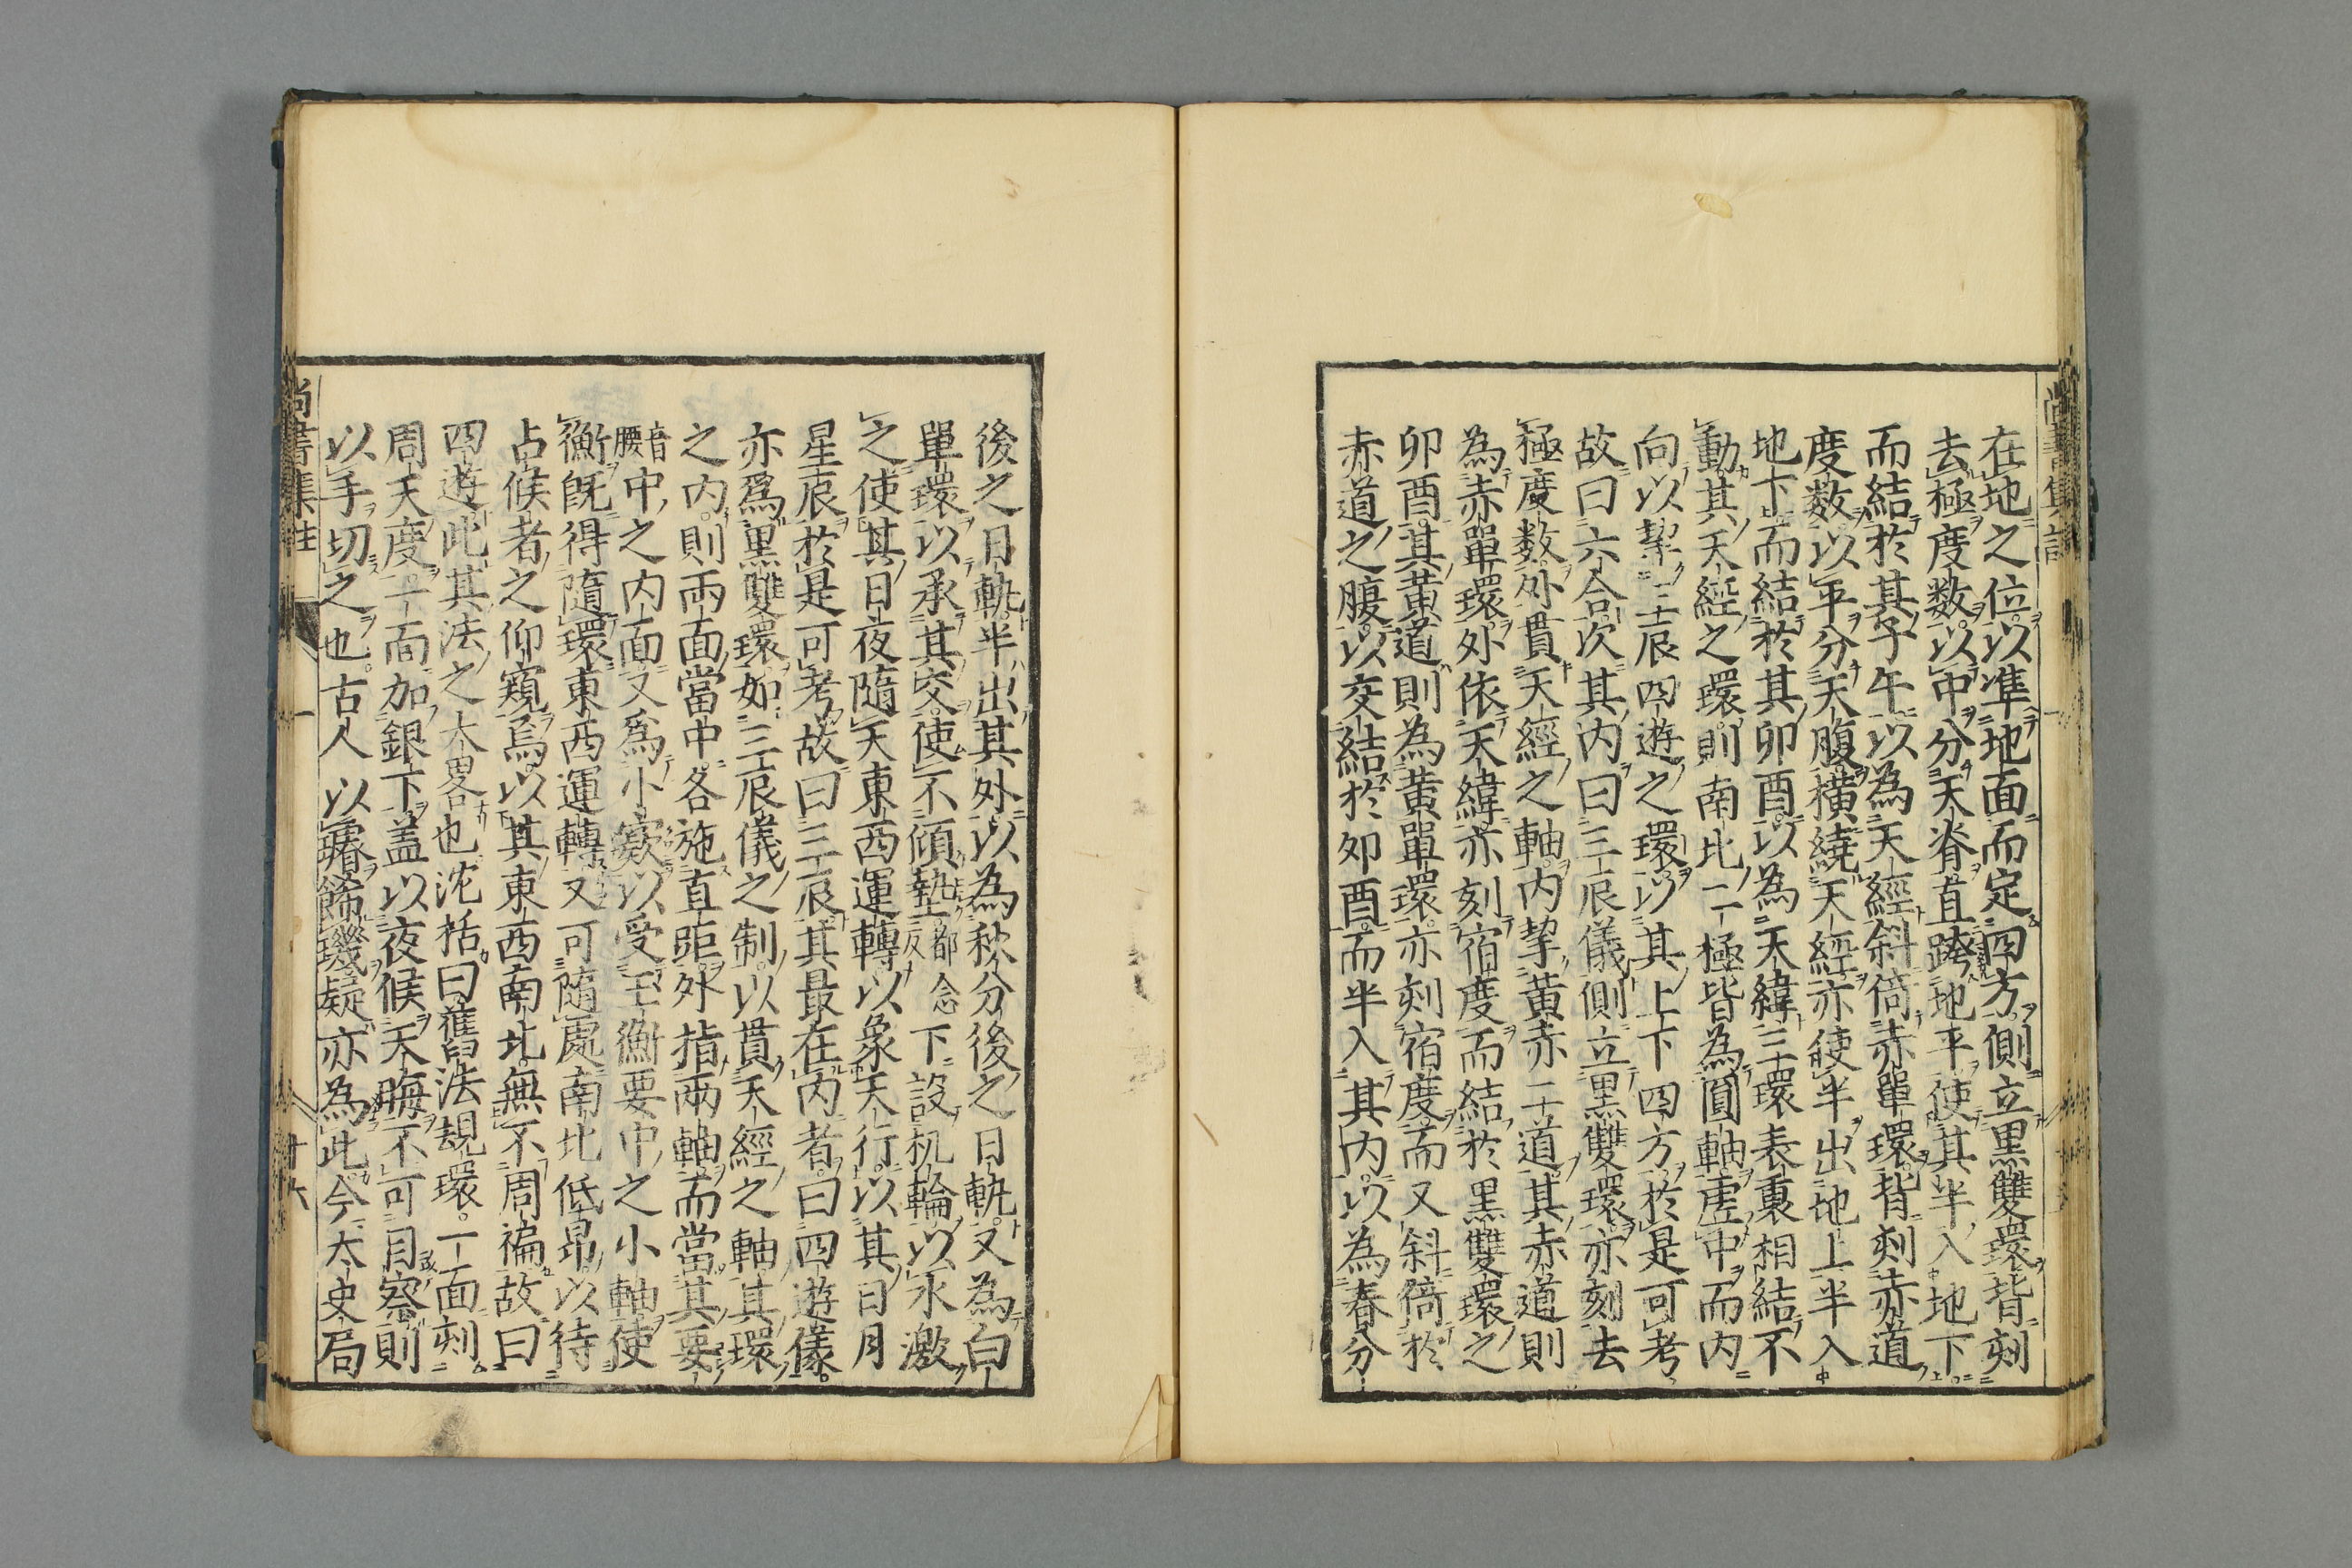 尚書集註
在地之位以準地面而定四方側立黒雙環背刻
去極度数以中分天脊直跨地平使其半入地下
而結於其子午以為天經斜倚赤單環背刻赤道
度数以平分天腹横繞天經亦使半出地上半入
地下而結於其卯酉以為天緯三環表裏相結不
動其天經之環則南北二極皆為圓軸虚中而内
向以挈三辰四遊之環以其上下四方於是可考
故曰六合次其内曰三辰儀側立黒雙環亦刻去
極度数外貫天經之軸内挈黄赤二道其赤道則
為赤單環外依天緯亦刻宿度而結於黒雙環之
卯酉其黄道則為黄單環亦刻宿度而又斜倚於
赤道之腹以交結於卯酉而半入其内以為春分
後之日軌半出其外以為秋分後之日軌又為白
單環以承其交使不傾墊都念反下設机輪以水激
之使其日夜隨天東西運轉以象天行以其日月
星辰於是可考故曰三辰其最在内者曰四遊儀
亦爲黒雙環如三辰儀之制以貫天經之軸其環
之内則兩面當中各施直距外指兩軸而當其要
音腰中之内面又爲小窾以受玉衡要中之小軸使
衡既得隨環東西運轉又可隨處南北低昂以待
占候者之仰窺焉以其東西南北無不周徧故曰
四遊此其法之大畧也沈括曰舊法規環一面刻
周天度一面加銀丁蓋以夜候天晦不可目察則
以手切之也古人以璿飾璣疑亦為此今太史局
尚書集註 一 十六